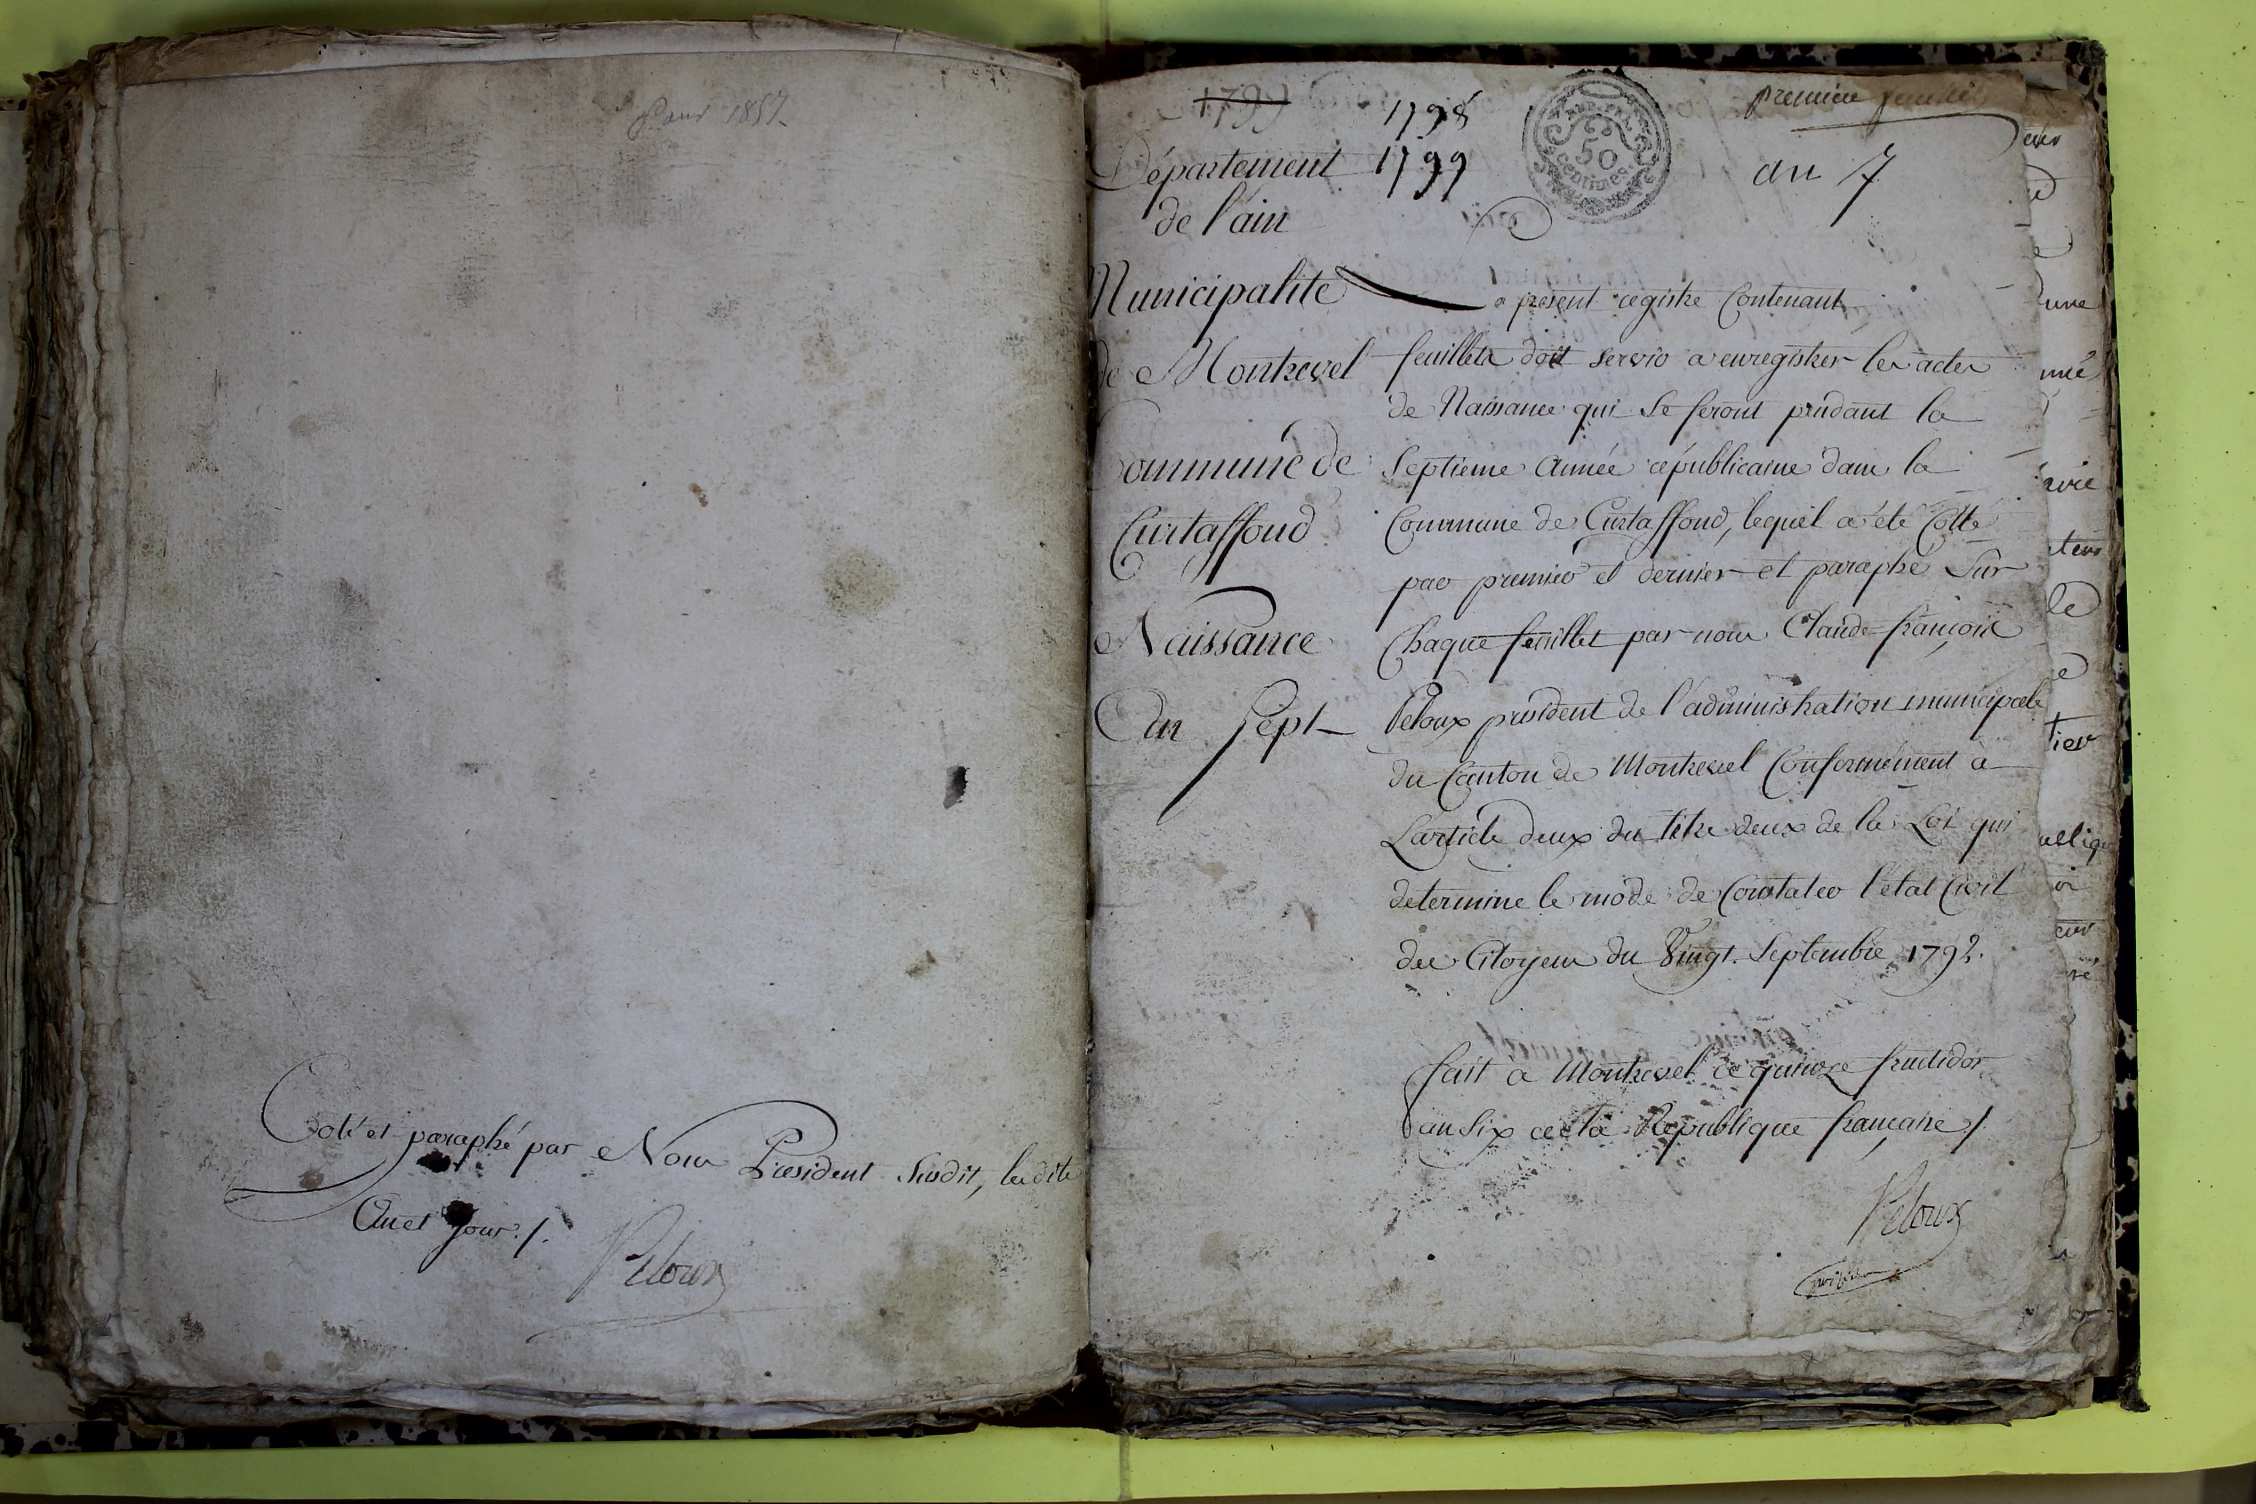 Pour 1857
Coté et paraphé par Nous Président Susdit, lesdits
An et Jour ./.
Peloux
1799
1798
1799
REP. FRA.
50
centimes
premier feuillet
an 7
Département
de l'ain
Municipalité
de Montrevel
Commune de
Curtaffond
Naissance
An Sept
Le présent registre Contenant
feuillets doit servir a enregistrer les actes
de Naissance qui Se feront pendant la
Septieme Année républicaine dans la
Commune de Curtaffond, lequel a été Cotté
par premier et dernier et paraphé Sur
Chaque feuillet par nous Claude françois
Peloux président de l'administration municipale
du Canton de Montrevel Conformément à
L'article deux du titre deux de la Loi qui
determine le mode de Constater l'état Civil
des Citoyens du Vingt Septembre 1792.
fait a Montrevel ce quinze fructidor
an Six de la République française ./.
Peloux